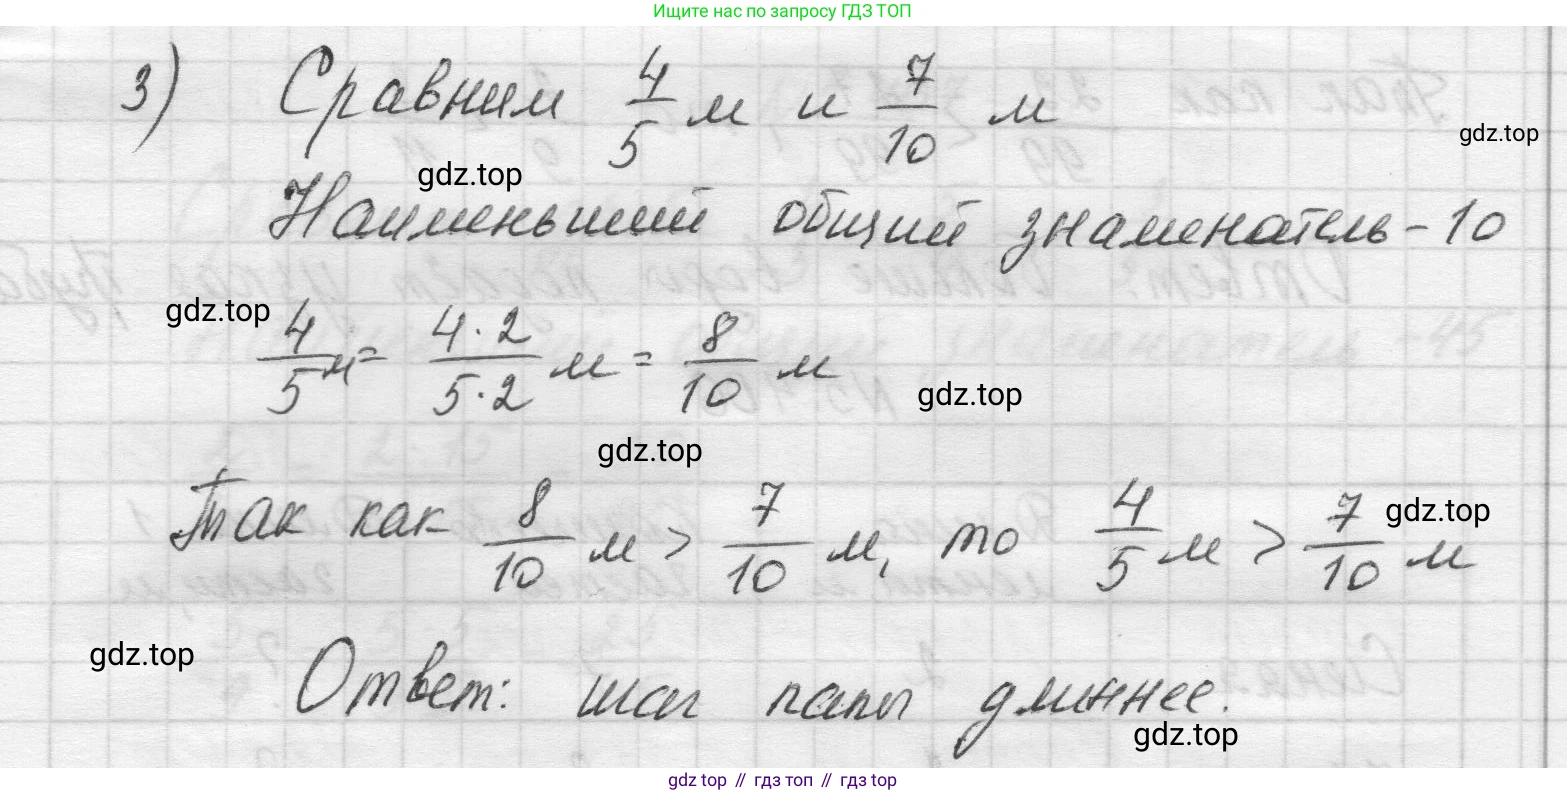 Ищите нас по запросу ГДЗ ТОП
3) Сравним 4/5 м и 7/10 м
gdz.top
gdz.top
Наименьший общий знаменатель - 10
gdz.top
4/5 м = 4·2/5·2 м = 8/10 м
gdz.top
gdz.top
Так как 8/10 м > 7/10 м, то 4/5 м > 7/10 м
gdz.top
gdz.top
Ответ: шаг папы длиннее.
gdz.top
gdz top // гдз топ // гдз top